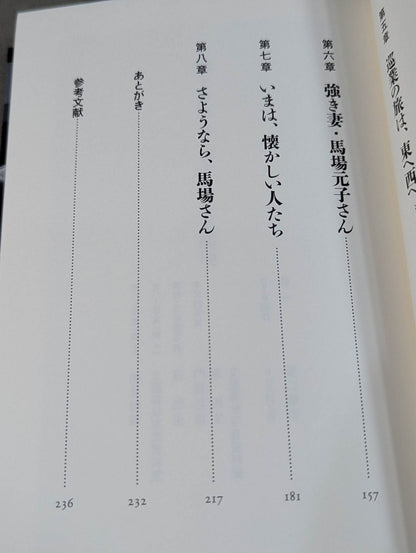 第五章 巡業の旅は、東へ西へ
第六章 強き妻・馬場元子さん 157
第七章 いまは、懐かしい人たち 181
第八章 さようなら、馬場さん 217
あとがき 232
参考文献 236